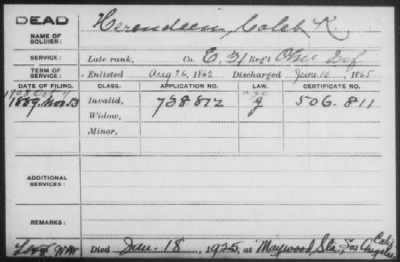 DEAD
NAME OF SOLDIER: Herendeen, Caleb K
SERVICE: Late rank, Co. E. 31 Reg't Ohio Inf
TERM OF SERVICE: Enlisted Aug 26, 1862 Discharged June 10, 1865
DATE OF FILING. CLASS. APPLICATION NO. LAW. CERTIFICATE NO.
1889 Nov 13 Invalid, 738812 g 506.811
Widow,
Minor,
ADDITIONAL SERVICES:
REMARKS:
Died Jan. 18, 1925, at Maywood Sta., Los Angeles, Calif